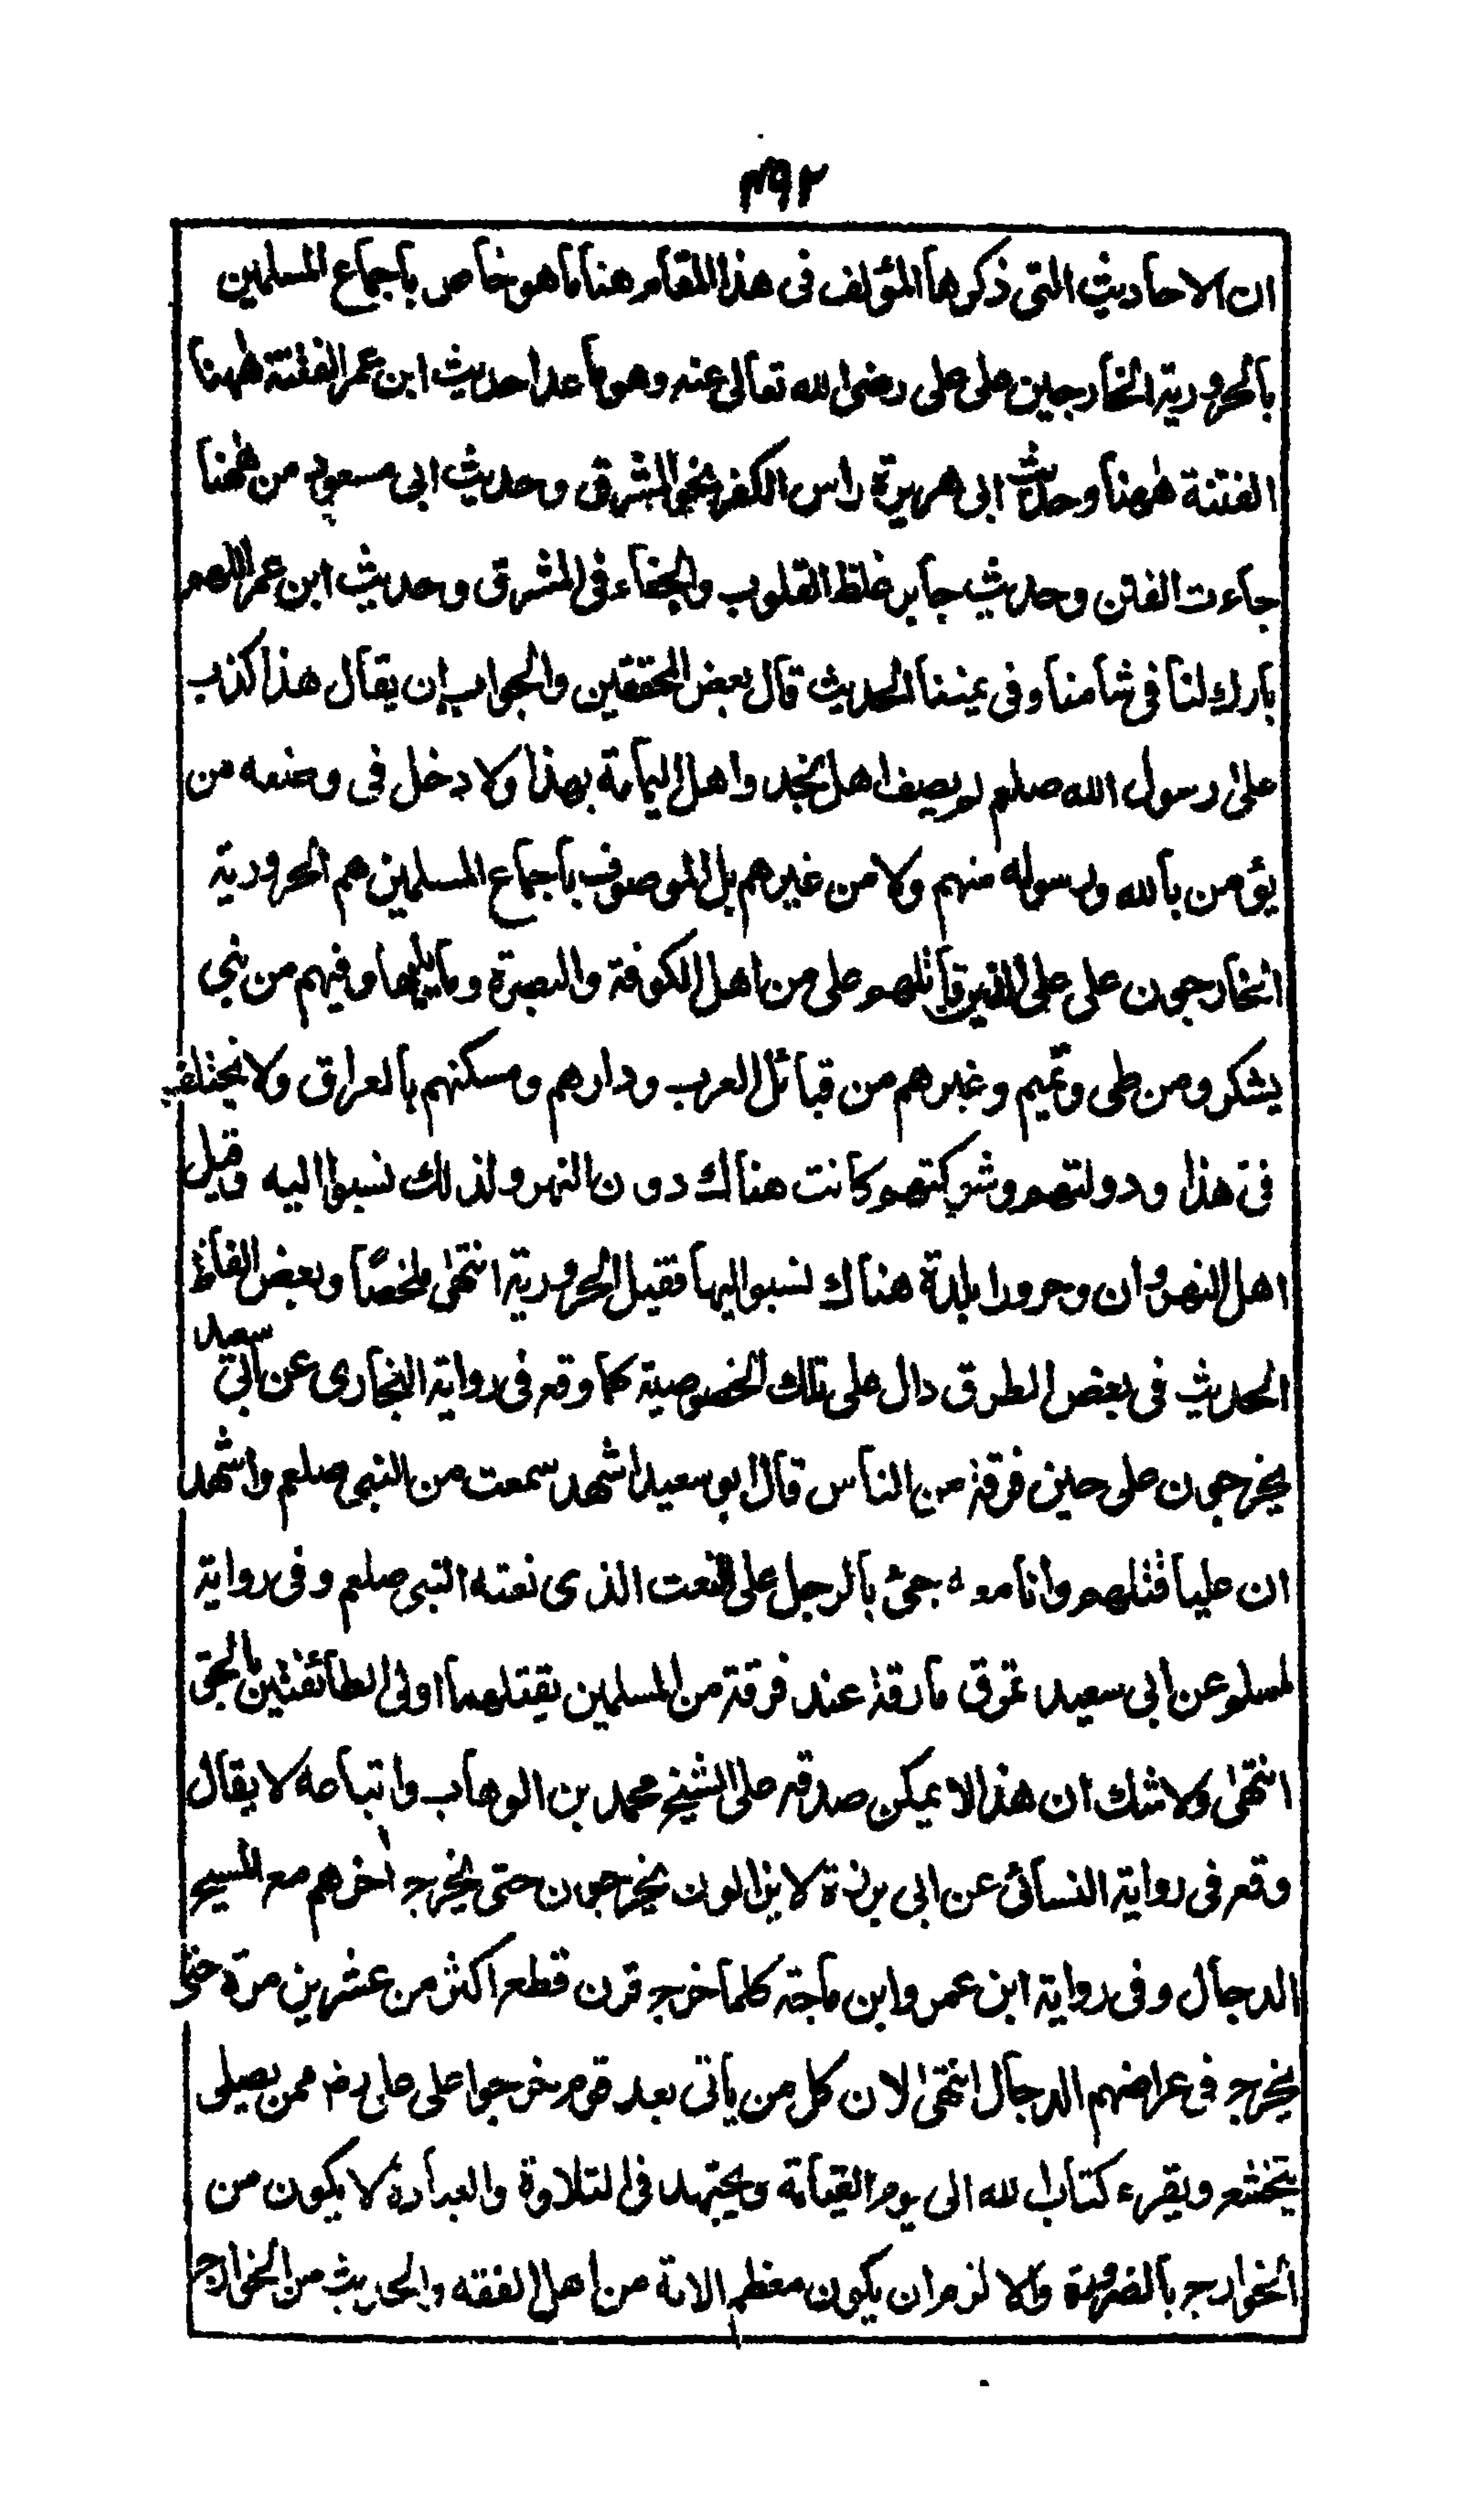 ٢٩٣
ان الاحاديث التى ذكرها المؤلف فى هذا المقام هنا ما هو خاص باجماع المسلمين
بالحرورية الخارجين على على رضى الله تعالى عنه وهو ما عدا حديث ابن عمر الفتنة ههنا
الفتنة ههنا وحديث ابى هريرة راس الكفر نحو المشرق وحديث ابى مسعود من ههنا
جاءت الفتن وحديث جابر غلظ القلوب والجفاء فى المشرق وحديث ابن عمر اللهم
بارك لنا فى شامنا وفى يمننا الحديث قال بعض المحققين والجواب ان يقال هذا كذب
على رسول الله صلعم لم يصف اهل نجد واهل اليمامة بهذا ولا دخل فى وصفه من
يؤمن بالله ورسوله منهم ولا من غيرهم بل الموصوف باجماع المسلمين هم الحرورية
الخارجون على على الذين قاتلهم على من اهل الكوفة والبصرة وما يليها وفيهم من بنى
يشكر ومن طى وتميم وغيرهم من قبائل العرب ودارهم ومسكنهم بالعراق ولا يختلف
فى هذا ودولتهم وشوكتهم كانت هناك دون النهر ولذلك نسبوا اليه وقيل
اهل النهروان وحرورا بلدة هناك نسبوا اليها فقيل الحرورية انتهى ملخصًا وبعض الفاظ
الحديث فى بعض الطرق دال على تلك الخصوصية كما وقع فى رواية البخارى عن ابى سعيد
يخرجون على حين فرقة من الناس قال ابو سعيد اشهد سمعت من النبى صلعم واشهد
ان عليا قتلهم وانا معه جئ بالرجل على النعت الذى نعته النبى صلعم وفى رواية
لمسلم عن ابى سعيد تمرق مارقة عند فرقة من المسلمين يقتلهما اولى الطائفتين بالحق
انتهى ولا شك ان هذا لا يمكن صدقه على الشيخ محمد بن الوهاب واتباعه لا يقال
وقع فى رواية النسائى عن ابى برزة لا يزالون يخرجون حتى يخرج اٰخرهم مع المسيح
الدجال وفى رواية ابن عمر وابن ماجة كلما خرج قرن قطع اكثر من عشرين مرة حتى
يخرج فى عراضهم الدجال انتهى لان كل من ياتى بعد قوم خرجوا على على رض ممن يصلى
يتخشع ويقرء كتاب الله الى يوم القيامة ويجتهد فى التلاوة والعبادة لا يكون من
الخوارج بالضرورة والا لزم ان يكون معظم الامة من اهل الفقه والحديث من الخوارج